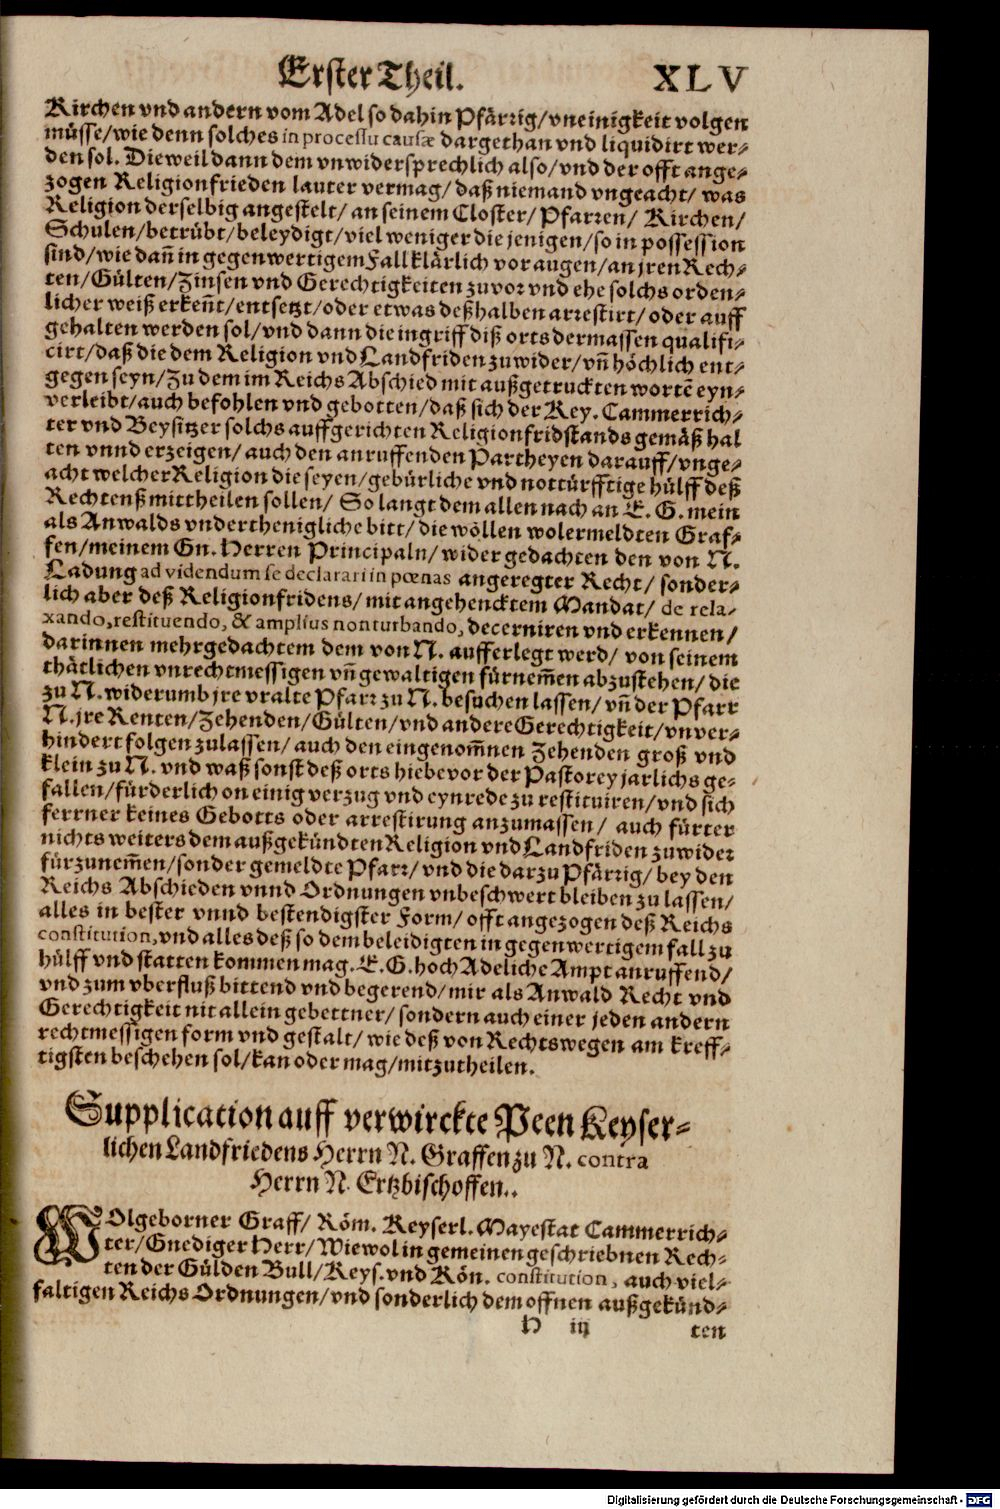 Erster Theil. XLV
Kirchen vnd andern vom Adel so dahin Pfärrig/vneinigkeit volgen
müsse/wie denn solches in processu causæ dargethan vnd liquidirt wer-
den sol. Dieweil dann dem vnwidersprechlich also/vnd der offt ange-
zogen Religionfrieden lauter vermag/daß niemand vngeacht/was
Religion derselbig angestelt/an seinem Closter/Pfarren/Kirchen/
Schulen/betrübt/beleydigt/viel weniger die jenigen/so in possession
sind/wie dañ in gegenwertigem Fall klärlich vor augen/an jren Rech-
ten/Gülten/Zinsen vnd Gerechtigkeiten zuvor vnd ehe solchs orden-
licher weiß erkeñt/entsetzt/oder etwas deßhalben arrestirt/oder auff
gehalten werden sol/vnd dann die ingriff diß orts dermassen qualifi-
cirt/daß die dem Religion vnd Landfriden zuwider/vñ höchlich ent-
gegen seyn/Zu dem im Reichs Abschied mit außgetruckten wortẽ eyn-
verleibt/auch befohlen vnd gebotten/daß sich der Key. Cammerrich-
ter vnd Beysitzer solchs auffgerichten Religionfridstands gemäß hal
ten vnnd erzeigen/auch den anruffenden Partheyen darauff/vnge-
acht welcher Religion die seyen/gebürliche vnd nottürfftige hülff deß
Rechtenß mittheilen sollen/ So langt dem allen nach an E. G. mein
als Anwalds vnderthenigliche bitt/die wöllen wolermeldten Graf-
fen/meinem Gn. Herren Principaln/wider gedachten den von N.
Ladung ad videndum se declarari in pœnas angeregter Recht/sonder-
lich aber deß Religionfridens/mit angehencktem Mandat/de rela-
xando, restituendo, & amplius non turbando, decerniren vnd erkennen/
darinnen mehrgedachtem dem von N. aufferlegt werd/von seinem
thätlichen vnrechtmessigen vñ gewaltigen fürnem̃en abzustehen/die
zu N. widerumb jre vralte Pfarr zu N. besuchen lassen/vñ der Pfarr
N. jre Renten/Zehenden/Gülten/vnd andere Gerechtigkeit/vnver-
hindert folgen zulassen/auch den eingenom̃nen Zehenden groß vnd
klein zu N. vnd waß sonst deß orts hiebevor der Pastorey jarlichs ge-
fallen/fürderlich on einig verzug vnd eynrede zu restituiren/vnd sich
ferrner keines Gebotts oder arrestirung anzumassen/ auch fürter
nichts weiters dem außgekündten Religion vnd Landfriden zuwider
fürzunem̃en/sonder gemeldte Pfarr/vnd die darzu Pfärrig/bey den
Reichs Abschieden vnnd Ordnungen vnbeschwert bleiben zu lassen/
alles in bester vnnd bestendigster Form/offt angezogen deß Reichs
constitution, vnd alles deß so dem beleidigten in gegenwertigem fall zu
hülff vnd statten kommen mag. E. G. hoch Adeliche Ampt anruffend/
vnd zum vberfluß bittend vnd begerend/mir als Anwald Recht vnd
Gerechtigkeit nit allein gebettner/sondern auch einer jeden andern
rechtmessigen form vnd gestalt/wie deß von Rechtswegen am kreff-
tigsten beschehen sol/kan oder mag/mitzutheilen.
Supplication auff verwirckte Peen Keyser-
lichen Landfriedens Herrn N. Graffen zu N. contra
Herrn N. Ertzbischoffen..
WOlgeborner Graff/ Röm. Keyserl. Mayestat Cammerrich-
ter/Gnediger Herr/Wiewol in gemeinen geschriebnen Rech-
ten der Gülden Bull/Keys. vnd Kön. constitution, auch viel-
faltigen Reichs Ordnungen/vnd sonderlich dem offnen außgekünd-
H iij ten
Digitalisierung gefördert durch die Deutsche Forschungsgemeinschaft - DFG